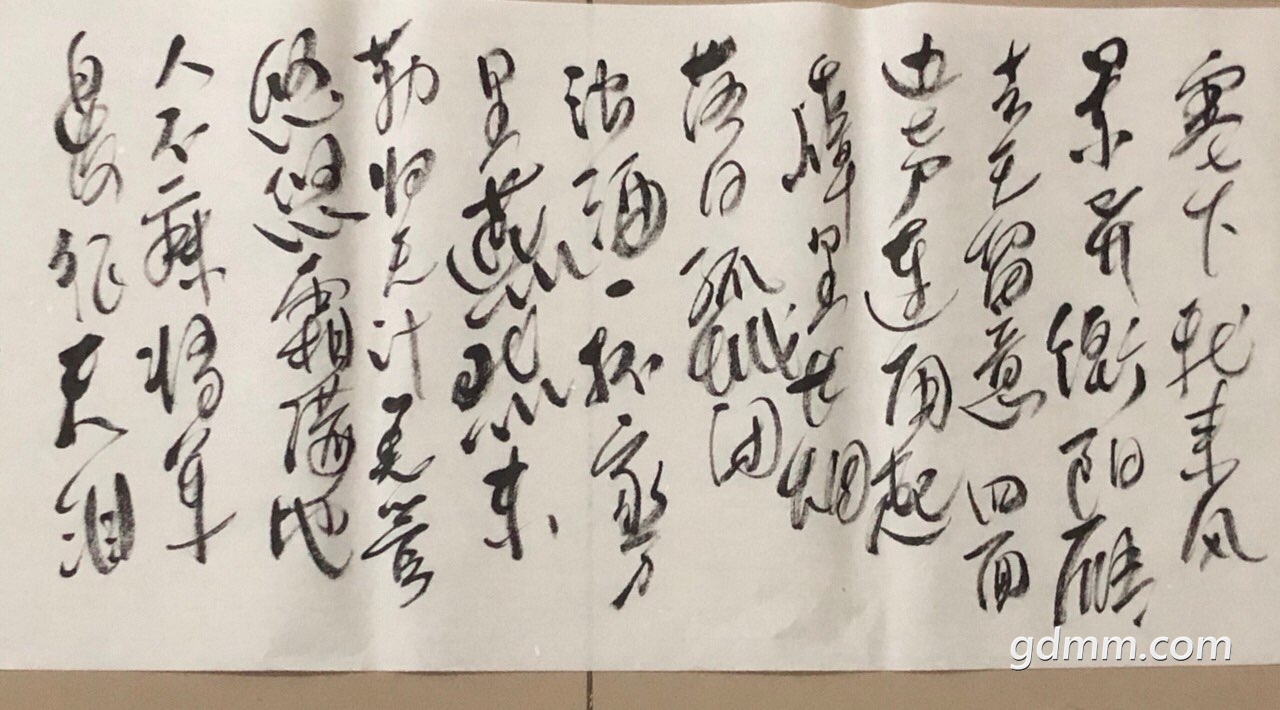 塞下秋来风
景异衡阳雁
去无留意四面
边声连角起
千嶂里长烟
落日孤城闭
浊酒一杯家万
里燕然未
勒归无计羌管
悠悠霜满地
人不寐将军
白发征夫泪
gdmm.com